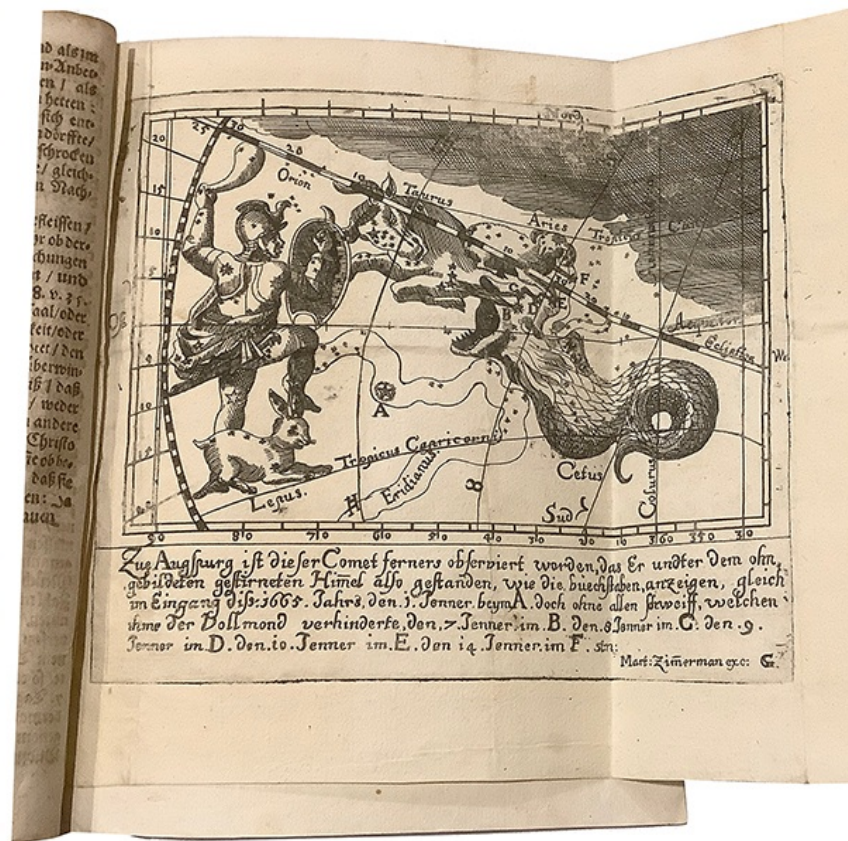 nd als im
n Anbet-
en / als
n hetten :
sich ent-
ndörffte/
schrocken
/ gleich-
n Nach-
fleissen /
r ob der-
chungen
/ und
8. v. 35.
aal/oder
keit/oder
/ den
überwin-
iß / daß
/ weder
n andere
Christo
daß sie
en: Ja
auen
Nord.
25
30
20
20
Orion
10
Taurus
Aries
Tropicus
Can
15
10
5
10
C
F
B
D
E
30
20
10
Aequator
Celestis
We
A
Tropicus Capricorni
Cetus
Colurus
Lepus.
H
Eridianus
8
Sud
90
810
710
610
510
410
310
210
10
360
350
310
Zue Augspurg ist dieser Comet ferners observiert worden, das Er undter dem ohn,
gebildeten gestirneten Him̄el also gestanden, wie die buechstaben, anzeigen, gleich
im Eingang diß: 1665. Jahrs. den. 1. Jenner. beym A. doch ohne allen schweiff, welchen
ihme der Vollmond verhinderte, den. 7. Jenner. im. B. den. 8 Jenner im. C. den. 9.
Jenner im. D. den. 10. Jenner im. E. den 14. Jenner. im F. stn:
Mart: Zim̄erman exc: G.